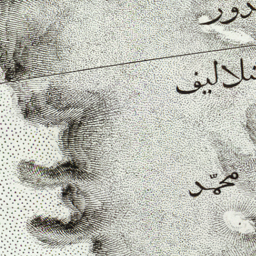 دور
شلاليف
محمد